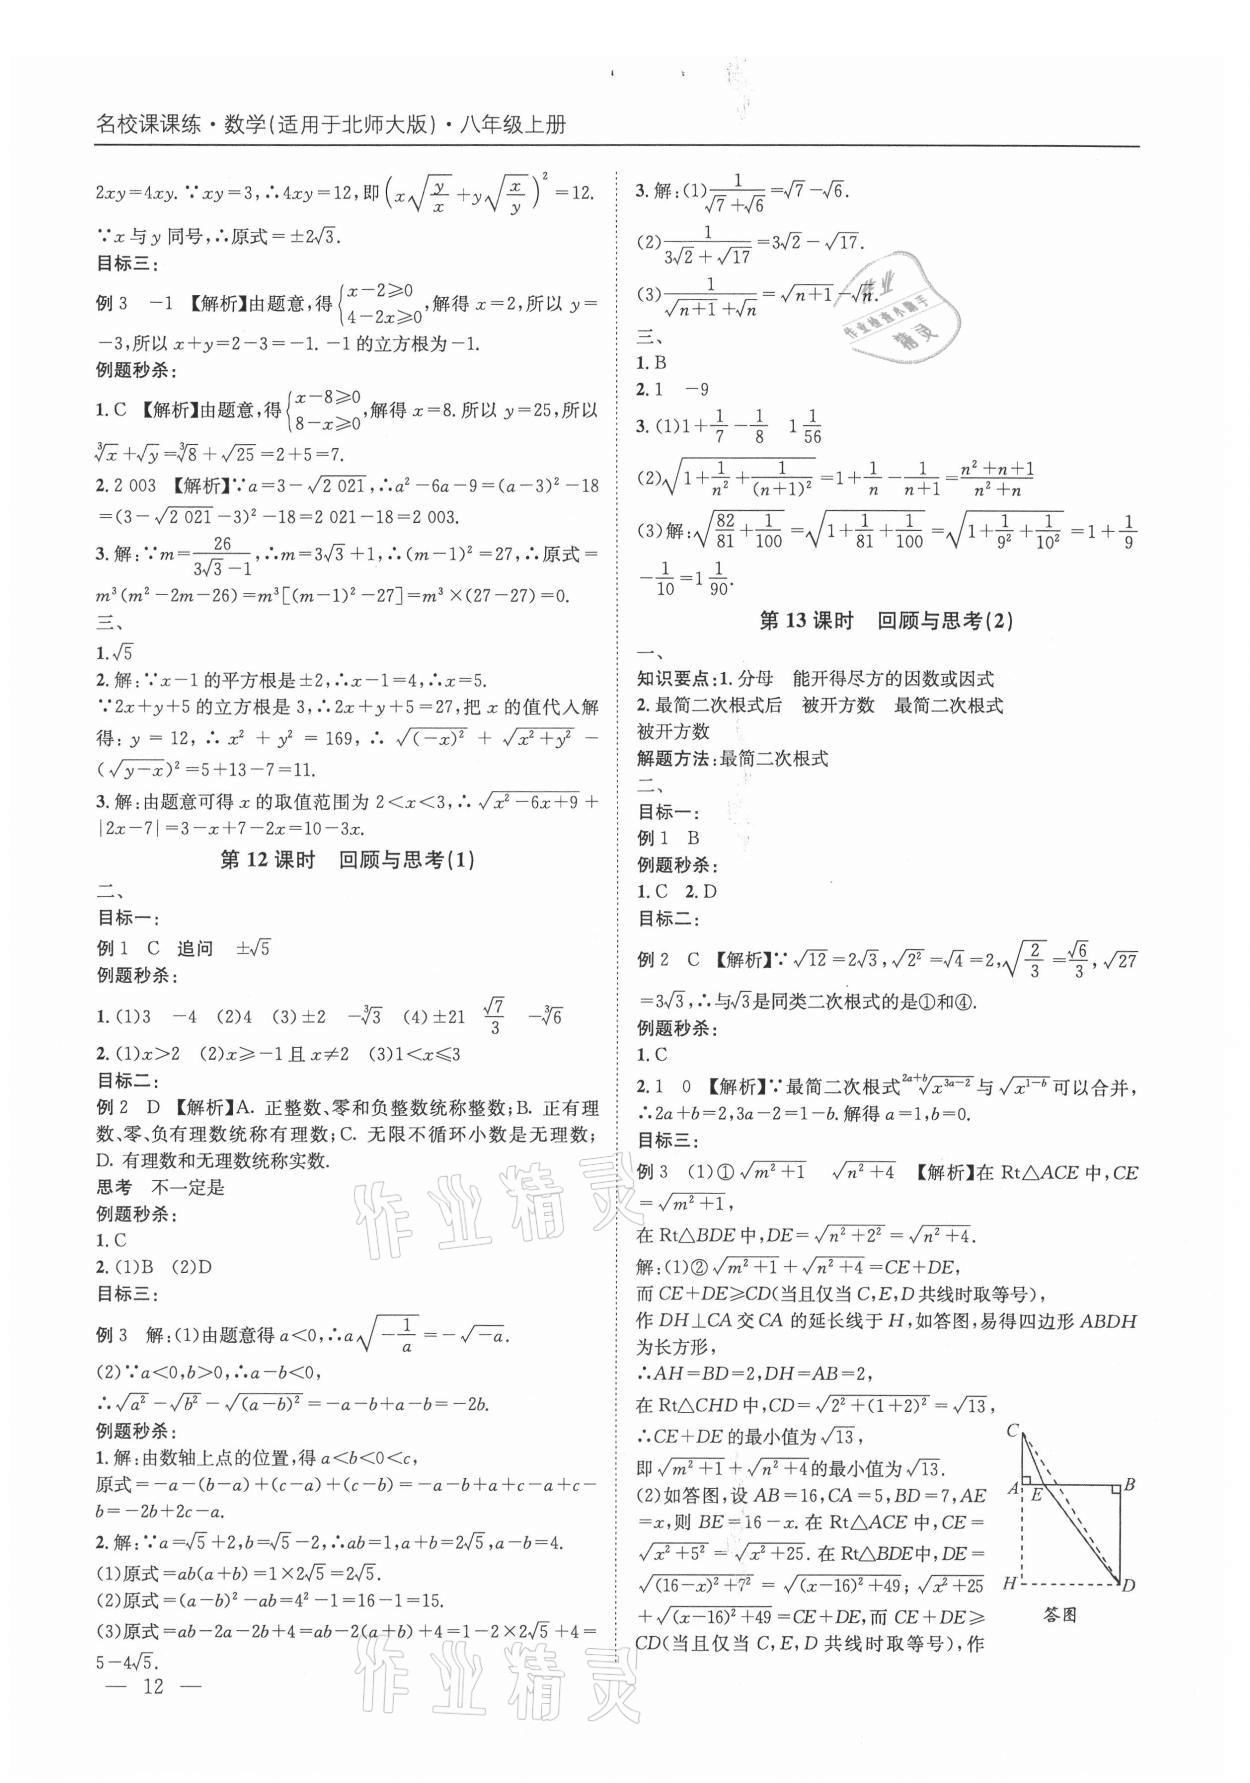 名校课课练·数学(适用于北师大版)·八年级上册
2xy=4xy. ∵xy=3,∴4xy=12,即(x√(y/x)+y√(x/y))²=12.
∵x与y同号,∴原式=±2√3.
目标三:
例3 -1 【解析】由题意,得{x-2≥0 4-2x≥0,解得x=2,所以y=
-3,所以x+y=2-3=-1. -1的立方根为-1.
例题秒杀:
1.C 【解析】由题意,得{x-8≥0 8-x≥0,解得x=8.所以y=25,所以
∛x+√y=∛8+√25=2+5=7.
2.2 003 【解析】∵a=3-√2 021,∴a²-6a-9=(a-3)²-18
=(3-√2 021-3)²-18=2 021-18=2 003.
3.解:∵m=26/(3√3-1),∴m=3√3+1,∴(m-1)²=27,∴原式=
m³(m²-2m-26)=m³[(m-1)²-27]=m³×(27-27)=0.
三、
1.√5
2.解:∵x-1的平方根是±2,∴x-1=4,∴x=5.
∵2x+y+5的立方根是3,∴2x+y+5=27,把x的值代入解
得:y=12,∴x²+y²=169,∴√((-x)²)+√(x²+y²)-
(√(y-x))²=5+13-7=11.
3.解:由题意可得x的取值范围为2<x<3,∴√(x²-6x+9)+
|2x-7|=3-x+7-2x=10-3x.
第12课时 回顾与思考(1)
二、
目标一:
例1 C 追问 ±√5
例题秒杀:
1.(1)3 -4 (2)4 (3)±2 -∛3 (4)±21 √7/3 -∛6
2.(1)x>2 (2)x≥-1且x≠2 (3)1<x≤3
目标二:
例2 D 【解析】A. 正整数、零和负整数统称整数;B. 正有理
数、零、负有理数统称有理数;C. 无限不循环小数是无理数;
D. 有理数和无理数统称实数.
思考 不一定是
例题秒杀:
1.C
2.(1)B (2)D
目标三:
例3 解:(1)由题意得a<0,∴a√(-1/a)=-√(-a).
(2)∵a<0,b>0,∴a-b<0,
∴√(a²)-√(b²)-√((a-b)²)=-a-b+a-b=-2b.
例题秒杀:
1.解:由数轴上点的位置,得a<b<0<c,
原式=-a-(b-a)+(c-a)+(c-b)=-a-b+a+c-a+c-
b=-2b+2c-a.
2.解:∵a=√5+2,b=√5-2,∴ab=1,a+b=2√5,a-b=4.
(1)原式=ab(a+b)=1×2√5=2√5.
(2)原式=(a-b)²-ab=4²-1=16-1=15.
(3)原式=ab-2a-2b+4=ab-2(a+b)+4=1-2×2√5+4=
5-4√5.
— 12 —
3.解:(1)1/(√7+√6)=√7-√6.
(2)1/(3√2+√17)=3√2-√17.
(3)1/(√(n+1)+√n)=√(n+1)-√n.
三、
1.B
2.1 -9
3.(1)1+1/7-1/8 1 1/56
(2)√(1+1/n²+1/(n+1)²)=1+1/n-1/(n+1)=(n²+n+1)/(n²+n)
(3)解:√(82/81+1/100)=√(1+1/81+1/100)=√(1+1/9²+1/10²)=1+1/9
-1/10=1 1/90.
第13课时 回顾与思考(2)
一、
知识要点:1.分母 能开得尽方的因数或因式
2.最简二次根式后 被开方数 最简二次根式
被开方数
解题方法:最简二次根式
二、
目标一:
例1 B
例题秒杀:
1.C 2.D
目标二:
例2 C 【解析】∵√12=2√3,√(2²)=√4=2,√(2/3)=√6/3,√27
=3√3,∴与√3是同类二次根式的是①和④.
例题秒杀:
1.C
2.1 0 【解析】∵最简二次根式 ²ᵃ⁺ᵇ√(x³ᵃ⁻²)与√(x¹⁻ᵇ)可以合并,
∴2a+b=2,3a-2=1-b.解得a=1,b=0.
目标三:
例3 (1)①√(m²+1) √(n²+4) 【解析】在Rt△ACE中,CE
=√(m²+1),
在Rt△BDE中,DE=√(n²+2²)=√(n²+4).
解:(1)②√(m²+1)+√(n²+4)=CE+DE,
而CE+DE≥CD(当且仅当C,E,D共线时取等号),
作DH⊥CA交CA的延长线于H,如答图,易得四边形ABDH
为长方形,
∴AH=BD=2,DH=AB=2,
在Rt△CHD中,CD=√(2²+(1+2)²)=√13,
∴CE+DE的最小值为√13,
即√(m²+1)+√(n²+4)的最小值为√13.
(2)如答图,设AB=16,CA=5,BD=7,AE
=x,则BE=16-x.在Rt△ACE中,CE=
√(x²+5²)=√(x²+25).在Rt△BDE中,DE=
√((16-x)²+7²)=√((x-16)²+49);√(x²+25)
+√((x-16)²+49)=CE+DE,而CE+DE≥
CD(当且仅当C,E,D共线时取等号),作
C
A E B
H D
答图
作业检查小助手
精灵
作业精灵
作业精灵